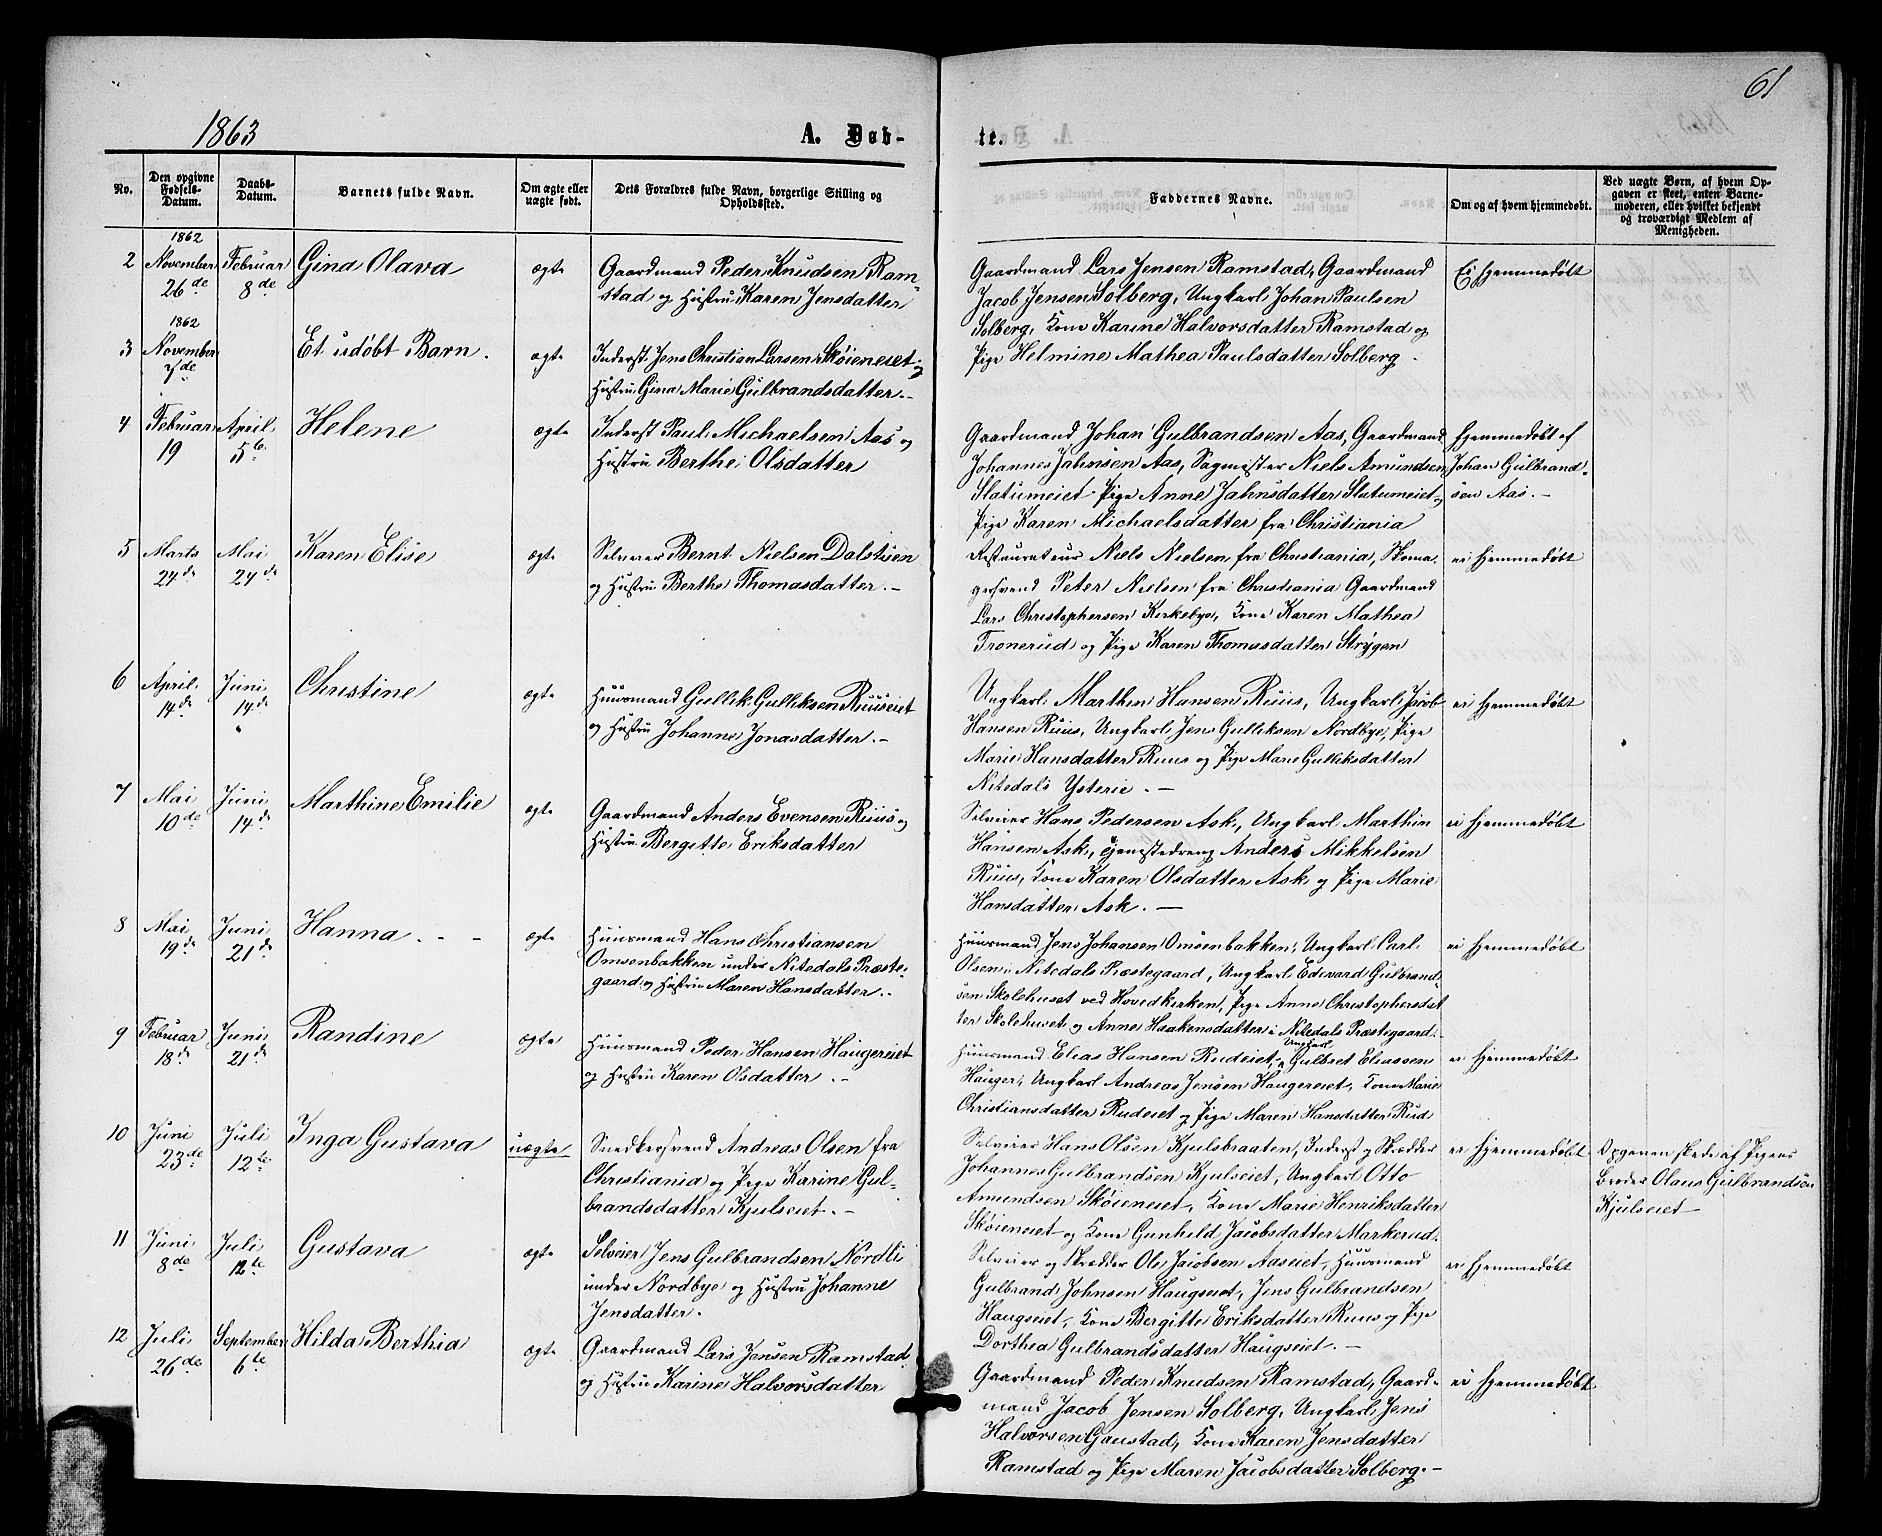 61
1863
A. Døb-
te.
No.
Den opgivne Fødsels-Datum.
Daabs-Datum.
Barnets fulde Navn.
Om ægte eller uægte født.
Dets Forældres fulde Navn, borgerlige Stilling og Opholdssted.
Faddernes Navne.
Om og af hvem hjemmedøbt.
Ved uægte Børn, af hvem Opgaven er skeet, enten Barnemoderen, eller hvilket bekjendt og troværdigt Medlem af Menigheden.
2
1862
November 26de
Februar 8de
Gina Olava
ægte
Gaardmand Peder Knudsen Ram-
stad og Hustru Karen Jensdatter
Gaardmand Lars Jensen Ramstad, Gaardmand
Jacob Jensen Solberg, Ungkarl Johan Paulsen
Solberg, Kone Karine Halvorsdatter Ramstad og
Pige Helmine Mathea Paulsdatter Solberg.
Ei hjemmedøbt
3
1862
November 7de
Et udøbt Barn.
ægte
Inderst Jens Christian Larsen Skøieneiet og
Hustru Gina Marie Gulbrandsdatter.-
4
Februar 19
April 5te
Helene
ægte
Inderst Paul Michaelsen Aas og
Hustru Berthe Olsdatter
Gaardmand Johan Gulbrandsen Aas, Gaardmand
Johannes Jahnsen Aas, Sagmester Niels Amundsen
Slatumeiet Pige Anne Jahnsdatter Slatumeiet og
Pige Karen Michaelsdatter fra Christiania
Hjemmedøbt af
Johan Gulbrand-
sen Aas.-
5
Marts 24de
Mai 24de
Karen Elise
ægte
Selveier Bernt Nielsen Dalstuen
og Hustru Berthe Thomasdatter.-
Restaurateur Niels Nielsen fra Christiania, Skoma-
gersvend Peter Nielsen fra Christiania Gaardmand
Lars Christophersen Kirkebye, Kone Karen Mathea
Tronerud og Pige Karen Thomasdatter Strygen
ei hjemmedøbt
6
April 14de
Juni 14de
Christine
ægte
Huusmand Gullik Gulliksen Ruuseiet
og Hustru Johanne Jonasdatter.-
Ungkarl Marthin Hansen Ruus, Ungkarl Jacob
Hansen Ruus, Ungkarl Jens Gulliksen Nordbye, Pige
Marie Hansdatter Ruus og Pige Marie Gulliksdatter
Nitedals Ysterie.-
ei hjemmedøbt
7
Mai 10de
Juni 14de
Marthine Emilie
ægte
Gaardmand Anders Evensen Ruus og
Hustru Bergitte Eriksdatter
Selveier Hans Pedersen Ask, Ungkarl Marthin
Hansen Ask, Tjenestedreng Anders Mikkelsen
Ruus, Kone Karen Olsdatter Ask og Pige Marie
Hansdatter Ask.-
ei hjemmedøbt
8
Mai 19de
Juni 21de
Hanna
ægte
Huusmand Hans Christiansen
Omsenbakken under Nitedals Præste-
gaard og Hustru Maren Hansdatter.-
Huusmand Jens Johansen Omsenbakken, Ungkarl Carl
Olsen i Nitedals Præstegaard, Ungkarl Edevard Gulbrand-
sen Skolehuset ved Hovedkirken, Pige Anne Christophersdat
ter Skolehuset og Anne Haakensdatter i Nitedals Præstegaard.
ei hjemmedøbt
9
Februar 18de
Juni 21de
Randine
ægte
Huusmand Peder Hansen Haugereiet
og Hustru Karen Olsdatter.-
Huusmand Elias Hansen Rudeiet, Ungkarl Gulbret Eliassen
Hauger, Ungkarl Andreas Jensen Haugereiet, Kone Marie
Christiansdatter Rudeiet og Pige Maren Hansdatter Rud
ei hjemmedøbt
10
Juni 23de
Juli 12te
Inga Gustava
uægte
Snedkersvend Andreas Olsen fra
Christiania og Pige Karine Gul-
brandsdatter Kjulseiet.-
Selveier Hans Olsen Kjulsbraaten, Inderst og Skrædder
Johannes Gulbrandsen Kjulseiet, Ungkarl Otto
Amundsen Skøieneiet, Kone Marie Henriksdatter
Skøieneiet og Kone Gunhild Jacobsdatter Markerud.
ei hjemmedøbt
Opgaven skede af Pigens
Broder Olaus Gulbrandsen
Kjulseiet
11
Juni 8de
Juli 12te
Gustava
ægte
Selveier Jens Gulbrandsen Nordli
under Nordbye og Hustru Johanne
Jensdatter.
Selveier og Skrædder Ole Jacobsen Aaseiet, Huusmand
Gulbrand Johnsen Haugseiet, Jens Gulbrandsen
Haugseiet, Kone Bergitte Eriksdatter Ruus og Pige
Dorthea Gulbrandsdatter Haugseiet.-
ei hjemmedøbt
12
Juli 26de
September 6te
Hilda Berthia
ægte
Gaardmand Lars Jensen Ramstad
og Hustru Karine Halvorsdatter
Gaardmand Peder Knudsen Ramstad, Gaard-
mand Jacob Jensen Solberg, Ungkarl Jens
Halvorsen Gaustad, Kone Karen Jensdatter
Ramstad og Pige Maren Jacobsdatter Solberg.-
ei hjemmedøbt